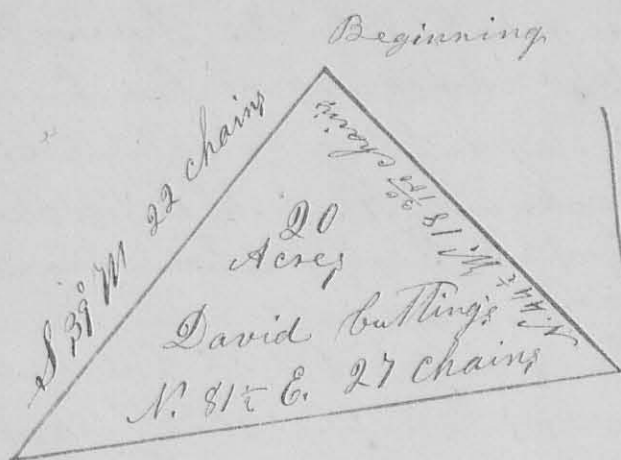 Beginning
S 39° W 22 chains
N. 44½ W. 18 20/100 chains
20
Acres
David Cutting's
N. 81½ E. 27 chains